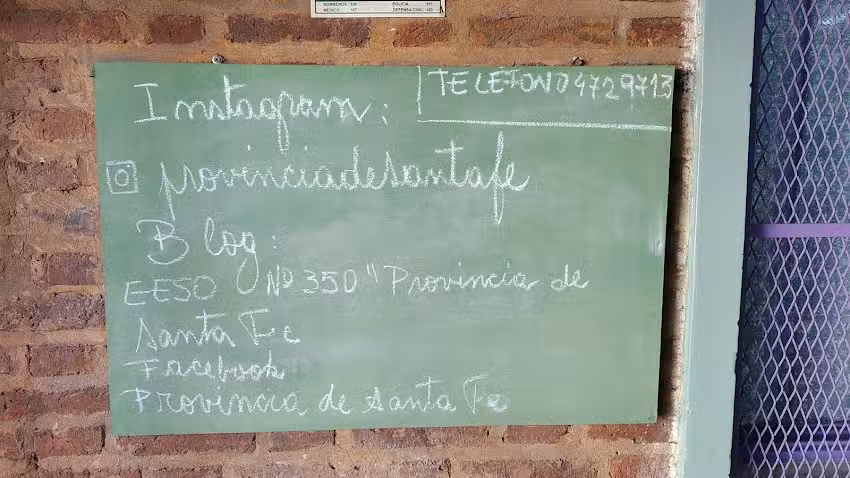 BOMBEROS 100 POLICIA 911
MEDICO 107 DEFENSA CIVIL 103
TELEFONO 4729713
Instagram:
provinciadesantafe
Blog:
EESO Nº 350 "Provincia de
Santa Fe
Facebook
Provincia de Santa Fe